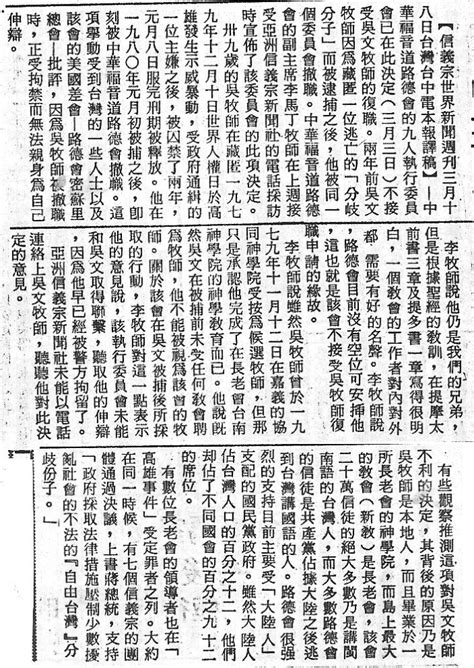 【信義宗世界新聞週刊三月十
八日台灣台中電本報譯稿】—中
華福音道路德會的九人執行委員
會已在此決定(三月三日)不接
受吳文牧師的復職。兩年前吳文
牧師因為藏匿一位逃亡的「分岐
份子」而被捕之後,他被同一
個委員會撤職。中華福音道路德
會的副主席李馬丁牧師在上週接
受亞洲信義宗新聞社的電話採訪
時宣佈了該委員會的此項決定。
卅九歲的吳牧師在藏匿一九七
九年十二月十日世界人權日於高
雄發生示威暴動,受政府通緝的
一位主嫌之後,被囚禁了兩年,
元月八日服完刑期被釋放。他在
一九八〇年元月初被捕之後,即
刻被中華福音道路德會撤職。這
項舉動受到台灣的一些人士以及
該會的美國差會—路德會密蘇里
總會—批評,因為吳牧師被撤職
時,正受拘禁而無法親身為自己
伸辯。
李牧師說他仍是我們的兄弟,
但是根據聖經的教訓,在提摩太
前書三章及提多書一章寫得很明
白,一個教會的工作者對內對外
都需要有好的名聲。李牧師說
,路德會目前沒有空位可安揷他
,這也就是該會不接受吳牧師復
職申請的緣故。
李牧師說雖然吳牧師曾於一九
七九年十一月十二日在嘉義的協
同神學院受按為候選牧師,但那
只是承認他完成了在長老會台南
神學院的神學教育而已。他說既
然吳文在被捕前未受任何教會聘
為牧師,他不能被視為該會的牧
師。關於該會在吳文被捕後所採
取的行動,李牧師對這一點表示
他的意見說,該執行委員會未能
和吳文取得聯繫,聽取他的伸辯
,因為他早已經被警方拘留了。
亞洲信義宗新聞社未能以電話
連絡上吳文牧師,聽聽他對此決
定的意見。
有些觀察推測這項對吳文牧師
不利的決定,其背後的原因乃是
吳牧師是本地人,而且畢業於一
所長老會的神學院,而島上最大
的教會(新教)是長老會,該會
二十萬信徒的絕大多數乃是講閩
南語的台灣人,而大多數路德會
的信徒是共產黨佔據大陸之後逃
到台灣講國語的人。路德會很強
烈的支持目前主要受「大陸人」
支配的國民黨政府。雖然大陸人
佔台灣人口的百分之十二,他們
却佔了不同國會的百分之九十二
的席位。
有數位長老會的領導者也在「
高雄事件」受定罪者之列。大約
在同一時候,有七個信義宗的團
體通過決議,上書蔣總統,支持
「政府採取法律措施壓制少數擾
亂社會的不法的『自由台灣』分
歧份子。」